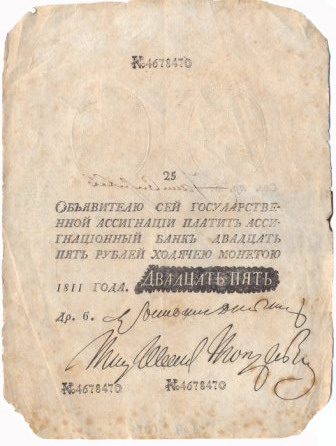 №4678470
25
Объявителю сей государстве-
нной ассигнаціи платитъ асси-
гнаціонный банкъ двадцать
пять рублей ходячею монетою
1811 года. Двадцать пять
Др. 6.
№4678470 №4678470